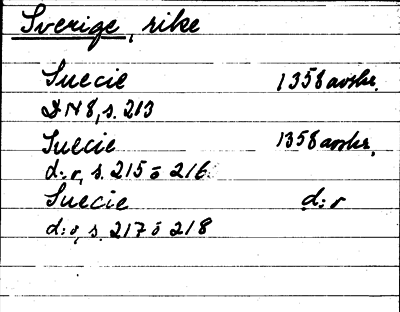 Sverige, rike
Suecie 1358 avskr.
DN 8, s. 213
Suecie 1358 avskr.
d:o, s. 215 o 216
Suecie d:o
d:o, s. 217 o 218